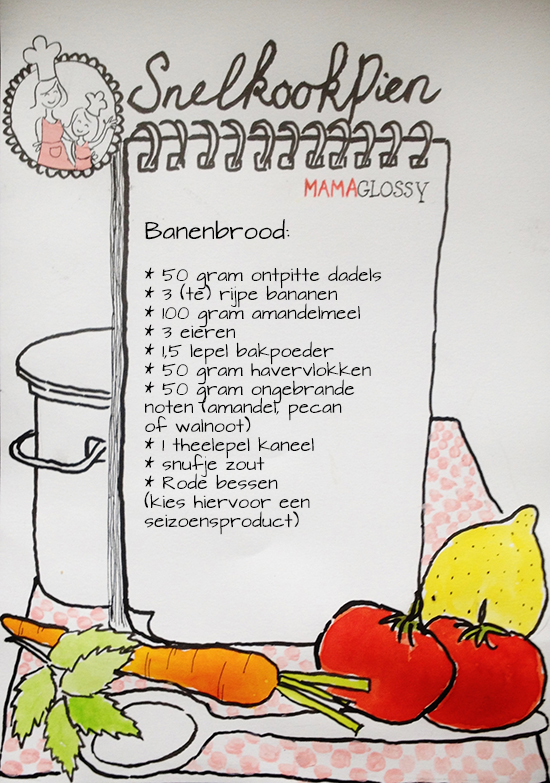 SnelkookPien
MAMAGLOSSY
Banenbrood:
* 50 gram ontpitte dadels
* 3 (te) rijpe bananen
* 100 gram amandelmeel
* 3 eieren
* 1,5 lepel bakpoeder
* 50 gram havervlokken
* 50 gram ongebrande
noten (amandel, pecan
of walnoot)
* 1 theelepel kaneel
* snufje zout
* Rode bessen
(kies hiervoor een
seizoensproduct)